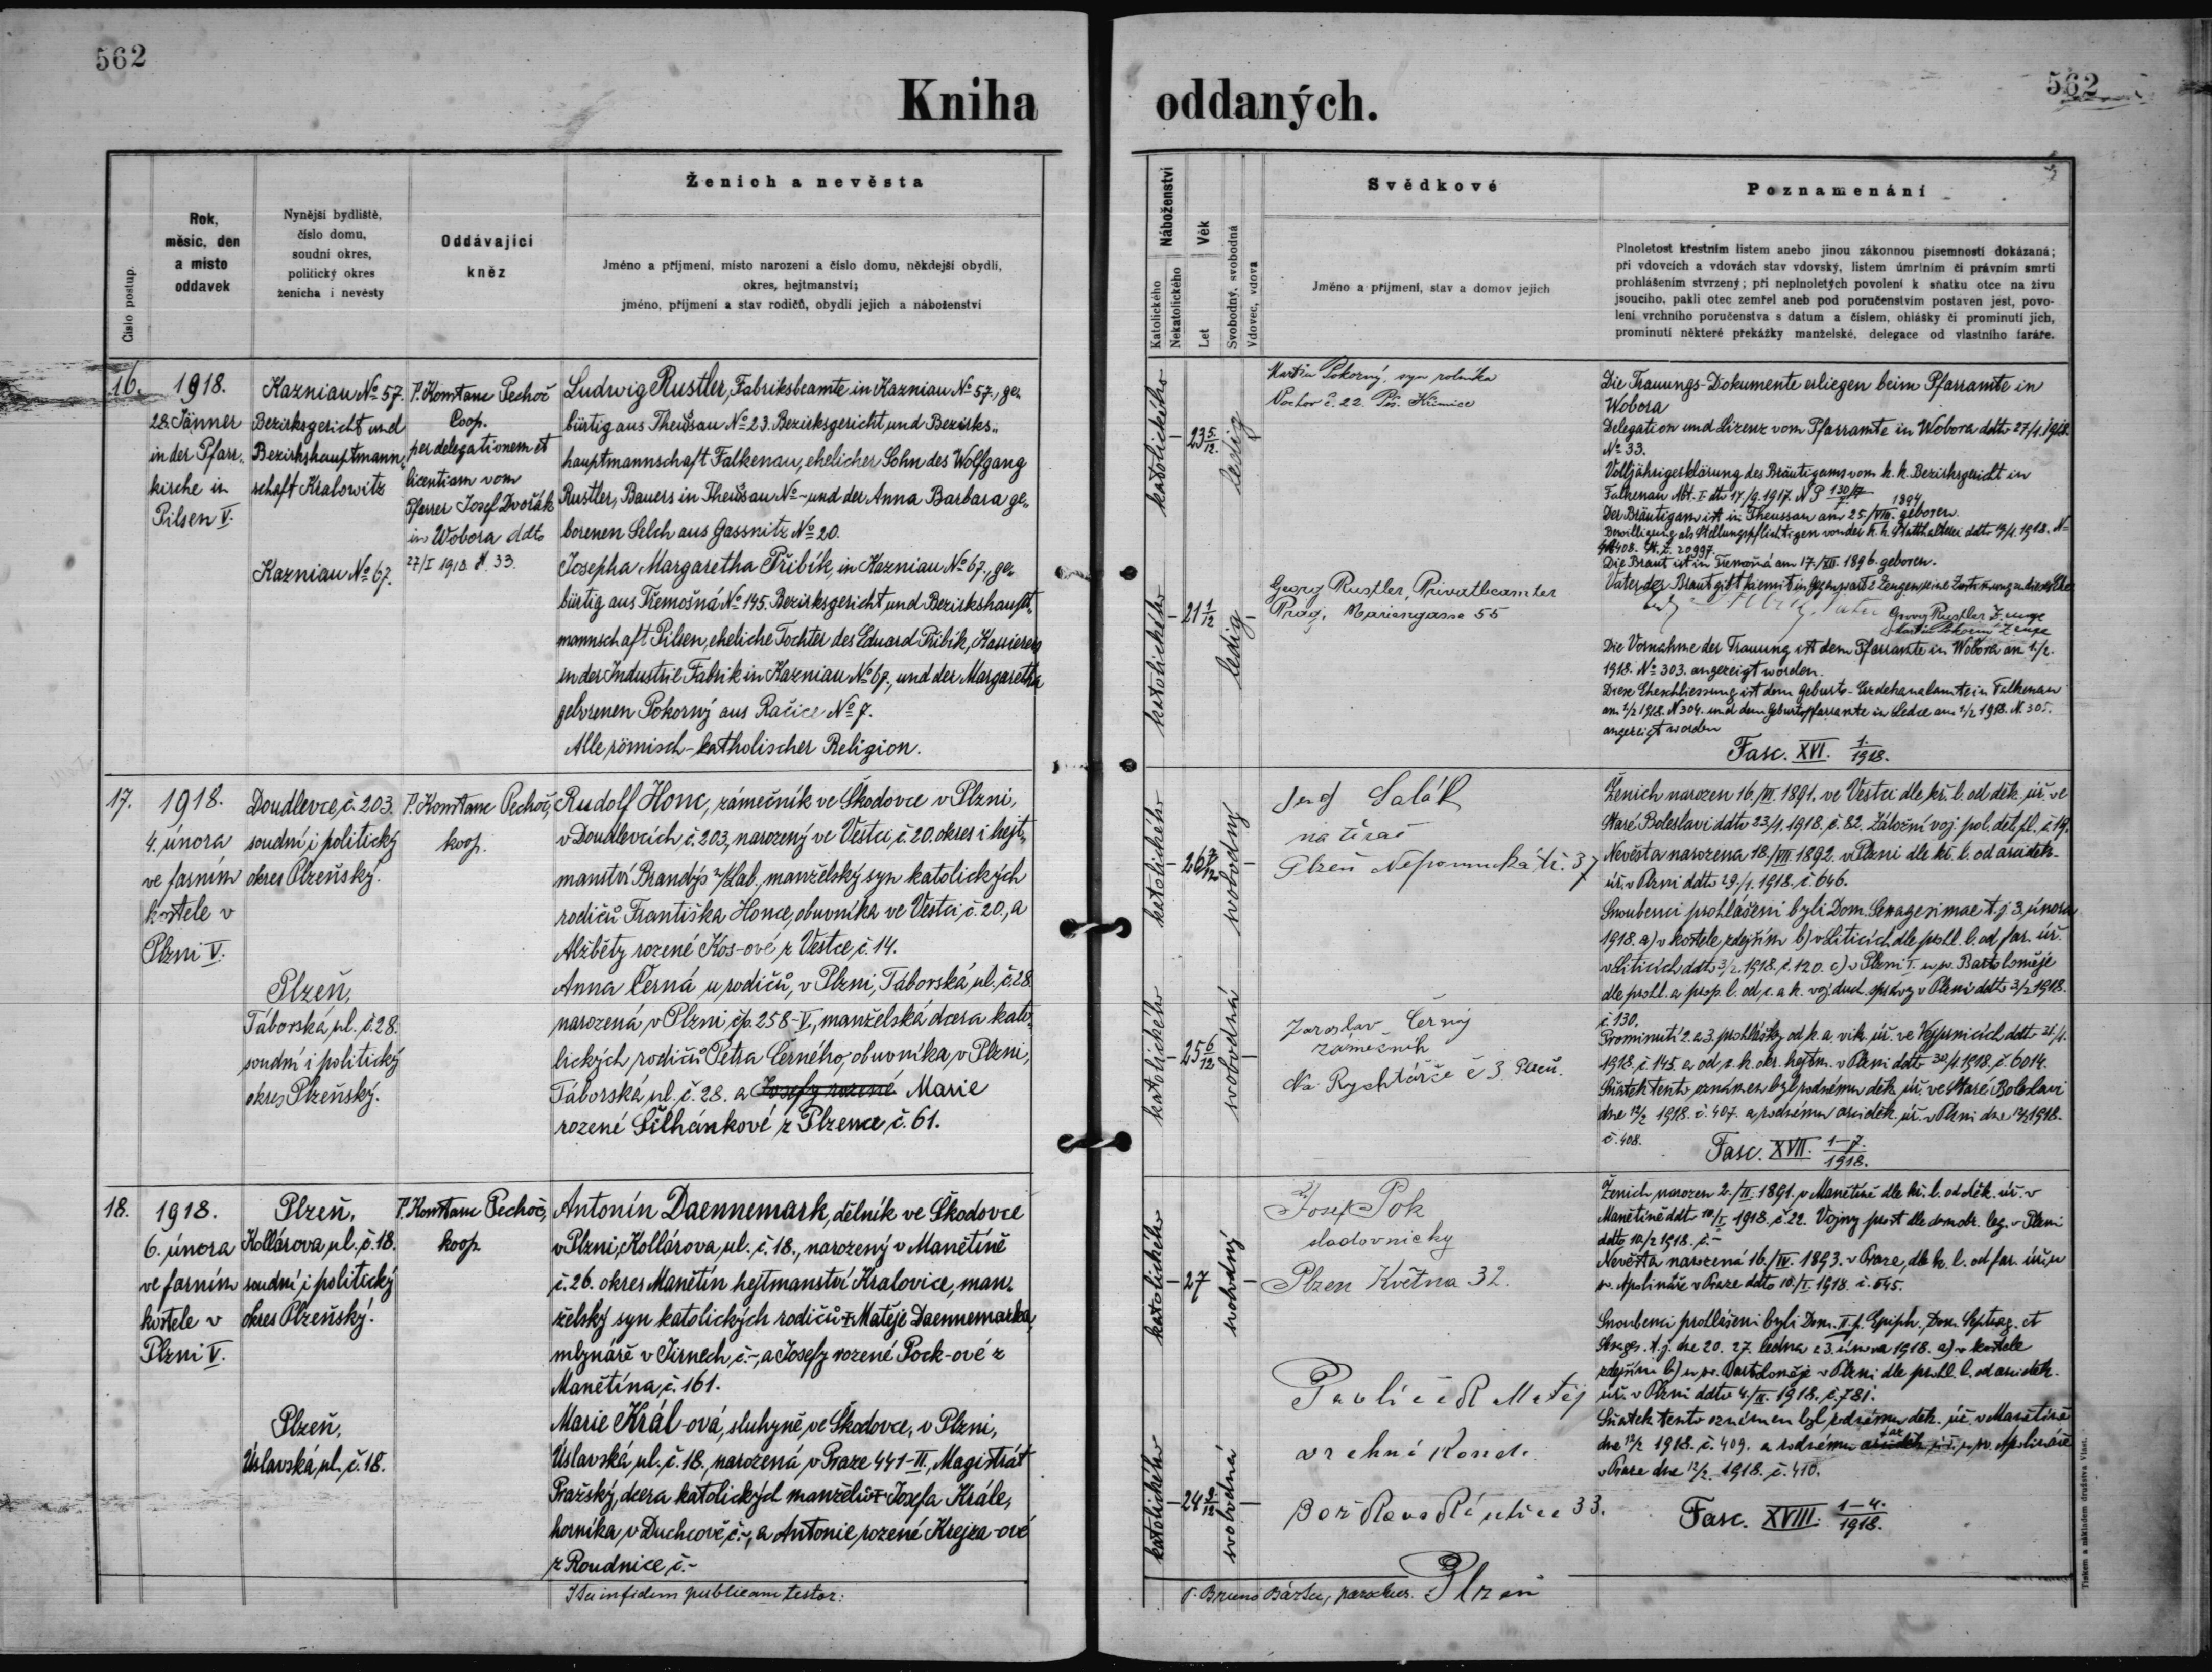 562
562
Kniha oddaných.
Číslo postup.
Rok,
měsíc, den
a místo
oddavek
Nynější bydliště,
číslo domu,
soudní okres,
politický okres
ženicha i nevěsty
Oddávající
kněz
Ženich a nevěsta
Jméno a příjmení, místo narození a číslo domu, někdejší obydlí,
okres, hejtmanství;
jméno, příjmení a stav rodičů, obydlí jejich a náboženství
Náboženství
Katolického
Nekatolického
Věk
Let
Svobodný, svobodná
Vdovec, vdova
Svědkové
Jméno a příjmení, stav a domov jejich
Poznamenání
Plnoletost křestním listem anebo jinou zákonnou písemností dokázaná;
při vdovcích a vdovách stav vdovský, listem úmrtním či právním smrti
prohlášením stvrzený; při neplnoletých povolení k sňatku otce na živu
jsoucího, pakli otec zemřel aneb pod poručenstvím postaven jest, povo-
lení vrchního poručenstva s datum a číslem, ohlášky či prominutí jich,
prominutí některé překážky manželské, delegace od vlastního faráře.
16.
1918.
28. Jänner
in der Pfarr-
kirche in
Pilsen V.
Kazniau No 57.
Bezirksgericht und
Bezirkshauptmann-
schaft Kralowitz
Kazniau No 67.
P. Konstanc Pechoč
Coop.
per delegationem et
licentiam vom
Pfarrer Josef Dvořák
in Wobora ddto
27/I 1918 N. 33.
Ludwig Rustler, Fabriksbeamte in Kazniau No 57., ge-
bürtig aus Theussau No 23. Bezirksgericht und Bezirks-
hauptmannschaft Falkenau, ehelicher Sohn des Wolfgang
Rustler, Bauers in Theussau No - und der Anna Barbara ge-
borenen Selch aus Gassnitz No 20.
Josepha Margaretha Přibík, in Kazniau No 67., ge-
bürtig aus Třemošná No 145. Bezirksgericht und Bezirkshaupt-
mannschaft Pilsen, eheliche Tochter des Eduard Přibík, Kassierers
in der Industrie Fabrik in Kazniau No 67., und der Margaretha
geborenen Pokorný aus Račice No 7.
Alle römisch-katholischer Religion.
katolického
23 5/12
ledig
katolického
21 1/12
ledig
Martin Pokorný, syn rolníka
Pochov č. 22. Křimice
Georg Rustler, Privatbeamter
Prag, Mariengasse 55
Die Trauungs-Dokumente erliegen beim Pfarramte in
Wobora
Delegation und Lizenz vom Pfarramte in Wobora ddto 27/1. 1918.
No 33.
Volljährigerklärung des Bräutigams vom k. k. Bezirksgericht in
Falkenau Abt. I. dto 17./9. 1917. N P 130/17
Der Bräutigam ist in Theussau am 25./VIII. 1894 geboren.
Bewilligung als Stellungspflichtigen von der k. k. Statthalterei ddto 1918. No
20997.
Die Braut ist in Tremošná am 17./XII. 1896. geboren.
Vater der Braut gibt hiemit in Gegenwart
Georg Rustler Zeuge
Martin Pokorný Zeuge
Die Vornahme der Trauung ist dem Pfarramte in Wobora am 1./2.
1918. No 303. angezeigt worden.
Diese Eheschliessung ist dem Geburts-Erzdekanalamte in Falkenau
am 1/2 1918. N 304. und dem Geburtspfarramte in Ledce am 1/2 1918. N. 305.
angezeigt worden
Fasc. XVI. 1./1918.
17.
1918.
4. února
ve farním
kostele v
Plzni V.
Doudlevce, č. 203.
soudní i politický
okres Plzeňský.
Plzeň,
Táborská ul. č. 28.
soudní i politický
okres Plzeňský.
P. Konstanc Pechoč,
koop.
Rudolf Honc, zámečník ve Škodovce v Plzni,
v Doudlevcích, č. 203, narozený ve Vestci, č. 20. okres i hejt-
manství Brandýs n/Lab., manželský syn katolických
rodičů Františka Honce, obuvníka ve Vestci, č. 20., a
Alžběty rozené Kos-ové z Vestce, č. 14.
Anna Černá u rodičů, v Plzni, Táborská ul., č. 28.
narozená v Plzni, čp. 258-V., manželská dcera kato-
lických rodičů Petra Černého, obuvníka, v Plzni,
Táborská ul. č. 28. a Josefy rozené Marie
rozené Šilhánkové z Plzence, č. 61.
katolického
svobodný
katolického
25 6/12
svobodná
Salák
natěrač
Plzeň Nepomucká tř. 37
Jaroslav Černý
zámečník
Na Rychtářce č 3 Plzeň.
Ženich narozen 16./VI. 1891. ve Vestci dle kř. l. od děk. úř. ve
Staré Boleslavi ddto 23/1. 1918. č. 82. Záložní voj. pol. děl. pl. č. 19.
Nevěsta narozena 18./VIII. 1892. v Plzni dle kř. l. od arciděk.
úř. v Plzni ddto 29./1. 1918. č. 646.
Snoubenci prohlášeni byli Dom. Sexagesimae t. j. 3. února
1918. a) v kostele zdejším b) v Liticích dle prohl. l. od far. úř.
v Liticích ddto 3/2. 1918. č. 120. c) v Plzni I. u sv. Bartoloměje
dle prohl. a prop. l. od c. a k. voj. duch. správy v Plzni ddto 3/2 1918.
č. 130.
Prominutí 2. a 3. prohlášky od k. a. vik. úř. ve Vejprnicích ddto 21./1.
1918. č. 145. a od c. k. okr. hejtm. v Plzni ddto 30/1. 1918. č. 6014.
Sňatek tento oznámen byl rodnému děk. úř. ve Staré Boleslavi
dne 12/2 1918. č. 407. a rodnému arciděk. úř. v Plzni dne 12/2 1918.
č. 408.
Fasc. XVII. 1-7./1918.
18.
1918.
6. února
ve farním
kostele v
Plzni V.
Plzeň,
Kollárova ul., č. 18.
soudní i politický
okres Plzeňský.
Plzeň,
Úslavská, ul. č. 18.
P. Konstanc Pechoč,
koop.
Antonín Daennemark, dělník ve Škodovce
v Plzni, Kollárova ul. č. 18., narozený v Manětíně
č. 26. okres Manětín hejtmanství Kralovice, man-
želský syn katolických rodičů † Matěje Daennemarka,
mlynáře v Jirnech, č.-, a Josefy rozené Pock-ové z
Manětína, č. 161.
Marie Král-ová, sluhyně ve Škodovce, v Plzni,
Úslavská, ul. č. 18., narozená v Praze 441-II., Magistrát
Pražský, dcera katolických manželů † Josefa Krále,
horníka v Duchcově, č.-, a Antonie rozené Krejza-ové
z Roudnice, č.-
katolického
27
svobodný
katolického
24 9/12
svobodná
Josef Pok
sladovnický
Plzen Května 32.
Pavlíček Matěj
vrchní Kond.
Bořkova Ré ulice 33.
Plzeň
Ženich narozen 2./II. 1891. v Manětíně dle kř. l. od děk. úř. v
Manětíně ddto 10./I. 1918. č. 22. Vojny prost dle domobr. leg. v Plzni
ddto 10./2 1918. č.-
Nevěsta narozená 16./IV. 1893. v Praze, dle k. l. od far. úřu u
sv. Apolináře v Praze ddto 10./I. 1918. č. 645.
Snoubenci prohlášeni byli Dom. II. p. Epiph., Dom. Septuag. et
Sexages. t. j. dne 20. 27. ledna a 3. února 1918. a) v kostele
zdejším b) u sv. Bartoloměje v Plzni dle prohl. l. od arciděk.
úř. v Plzni ddto 4./II. 1918. č. 781.
Sňatek tento oznámen byl rodnému děk. úř. v Manětíně
dne 12/2 1918. č. 409. a rodnému arciděk. far. úř. u sv. Apolináře
v Praze dne 12/2 1918. č. 410.
Fasc. XVIII. 1-4./1918.
Ita in fidem publicam testor:
P. Bruno Bárta, parochus.
Tiskem a nákladem družstva Vlast.